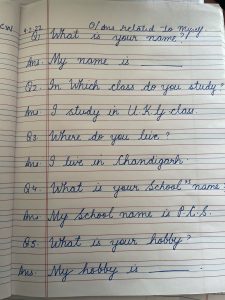 CW 4.2.22 Q/Ans related to myself
Q1 What is your name?
Ans: My name is ______
Q2. In Which class do you study?
Ans: I study in U.K.G class.
Q3 Where do you live?
Ans: I live in Chandigarh.
Q4 What is your School's name?
Ans My School name is P.C.S.
Q5 What is your hobby?
Ans: My hobby is ______.